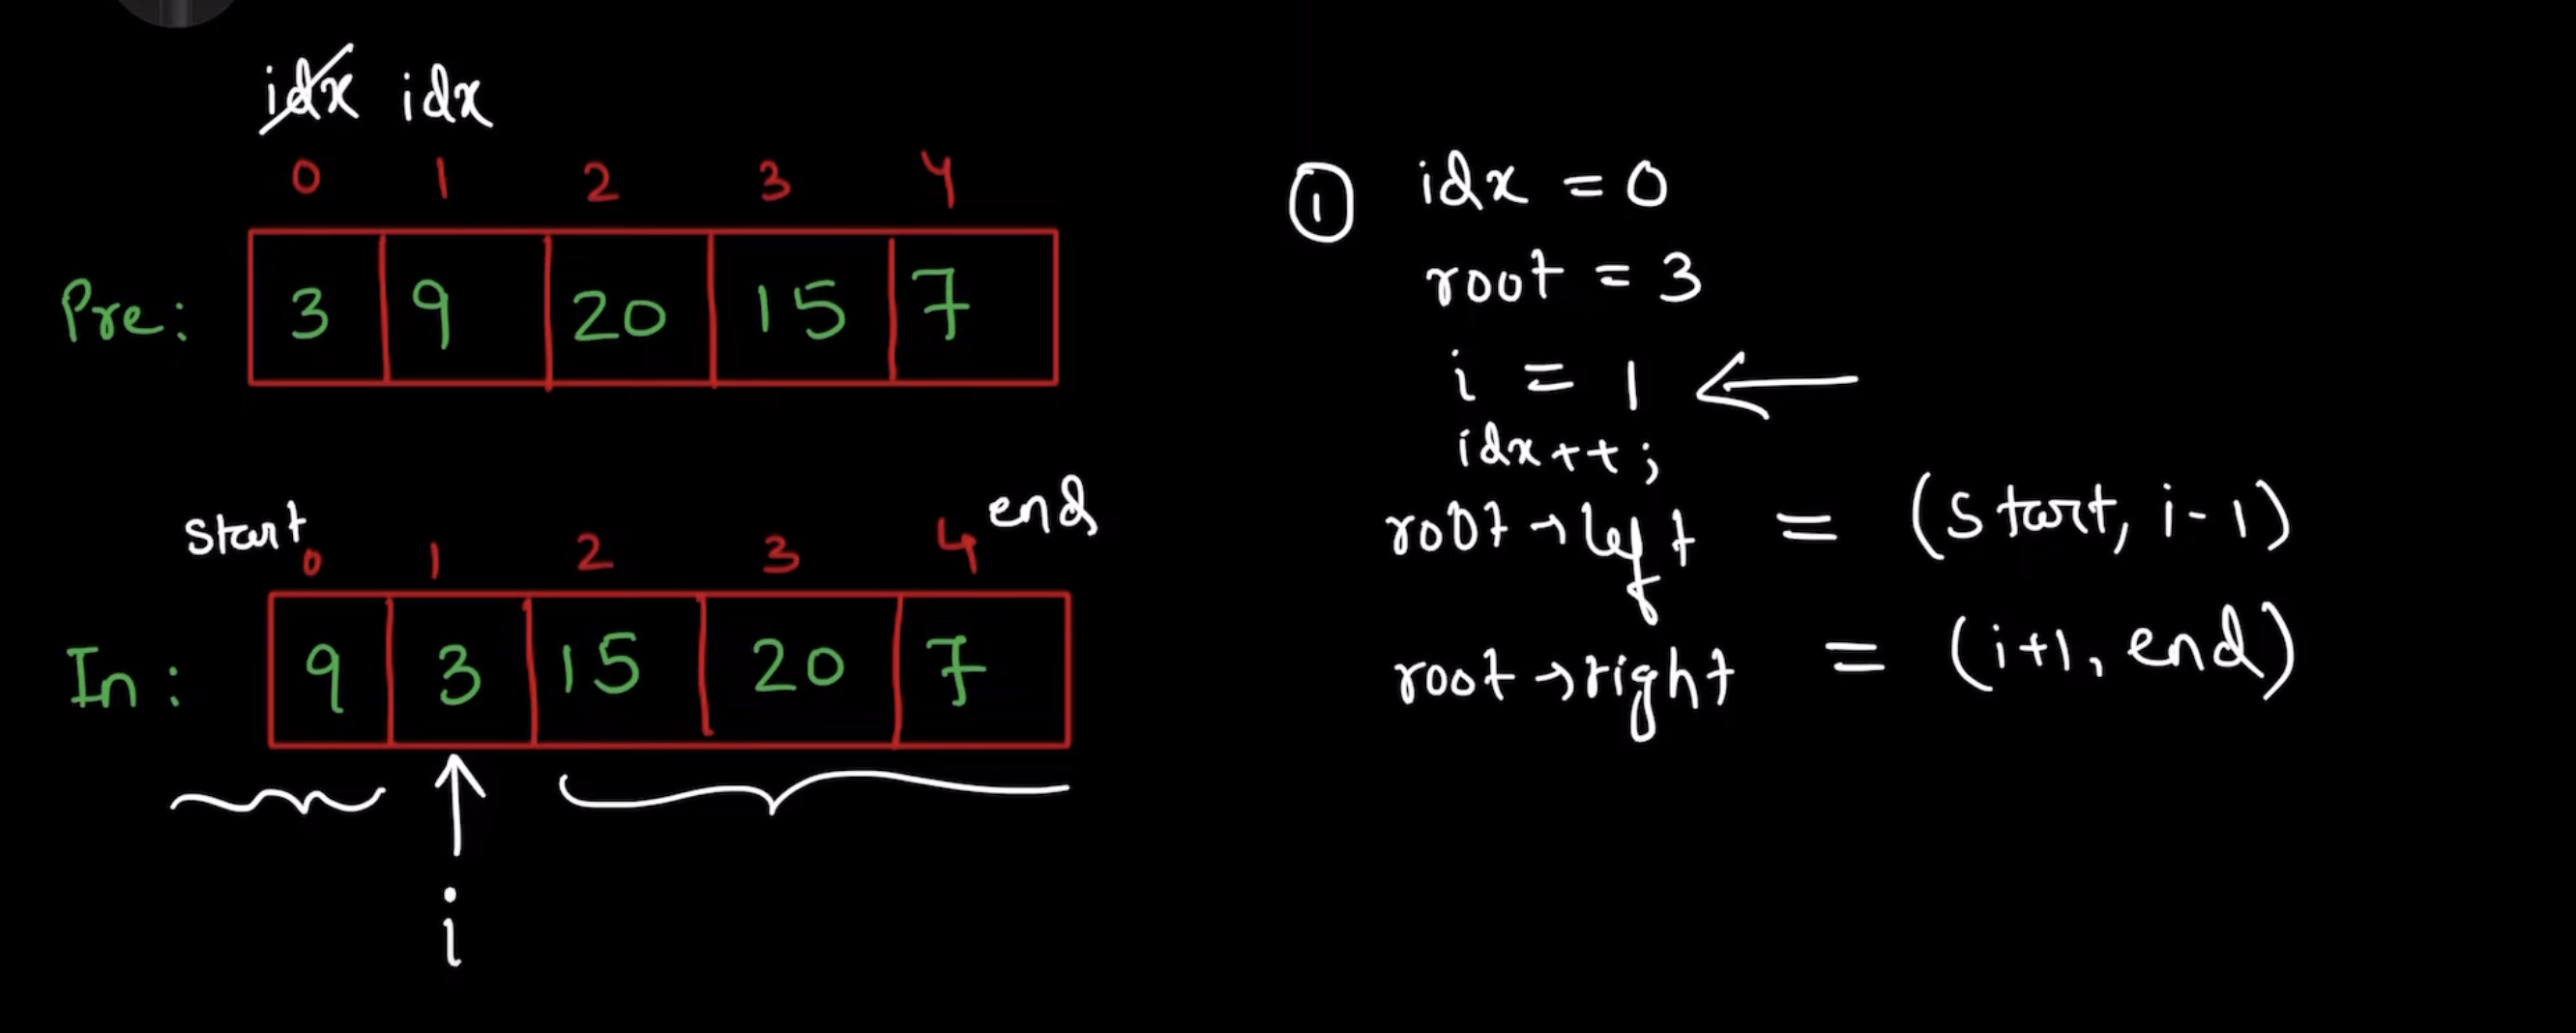 idx idx
0 1 2 3 4
Pre: 3 9 20 15 7
start end
0 1 2 3 4
In: 9 3 15 20 7
i
① idx = 0
root = 3
i = 1 ←
idx++;
root→left = (start, i-1)
root→right = (i+1, end)